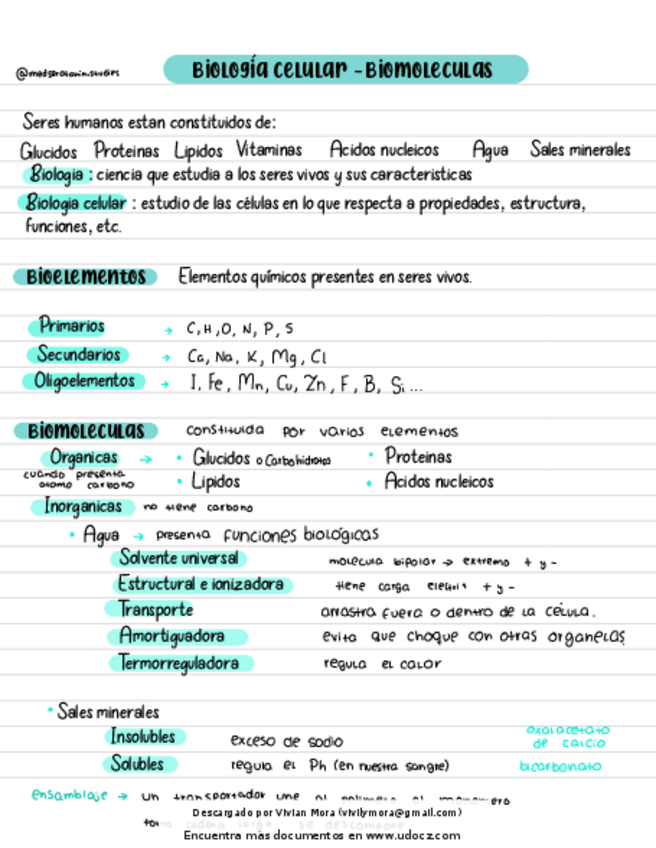 Biología celular - Biomoleculas
Seres humanos estan constituidos de:
Glucidos Proteinas Lipidos Vitaminas Acidos nucleicos Agua Sales minerales
Biologia : ciencia que estudia a los seres vivos y sus caracteristicas
Biologia celular : estudio de las células en lo que respecta a propiedades, estructura,
funciones, etc.
Bioelementos Elementos químicos presentes en seres vivos.
Primarios → C, H, O, N, P, S
Secundarios → Ca, Na, K, Mg, Cl
Oligoelementos → I, Fe, Mn, Cu, Zn, F, B, Si...
Biomoleculas constituida por varios elementos
Organicas → • Glucidos o Carbohidratos • Proteinas
cuando presenta
atomo carbono • Lipidos • Acidos nucleicos
Inorganicas no tiene carbono
• Agua → presenta funciones biológicas
Solvente universal molecula bipolar → extremo + y -
Estructural e ionizadora tiene carga + y -
Transporte arrastra fuera o dentro de la celula.
Amortiguadora evita que choque con otras organelas
Termorreguladora regula el calor
• Sales minerales
Insolubles exceso de sodio oxalacetato
de calcio
Solubles regula el Ph (en nuestra sangre) bicarbonato
ensamblaje → un transportador une al
Descargado por Vivian Mora (vivilymora@gmail.com)
cadena larga se descompone
Encuentra más documentos en www.udocz.com